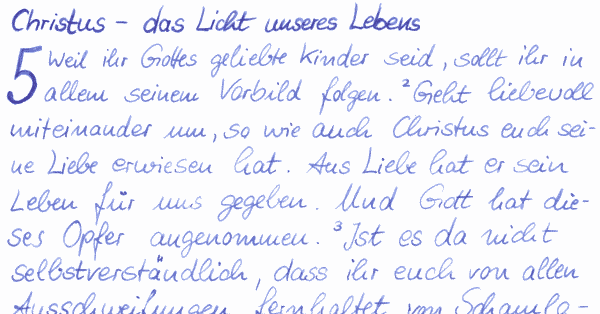 Christus – das Licht unseres Lebens
5 Weil ihr Gottes geliebte Kinder seid, sollt ihr in
allem seinem Vorbild folgen. ² Geht liebevoll
miteinander um, so wie auch Christus euch sei-
ne Liebe erwiesen hat. Aus Liebe hat er sein
Leben für uns gegeben. Und Gott hat die-
ses Opfer angenommen. ³ Ist es da nicht
selbstverständlich, dass ihr euch von allen
Ausschweifungen fernhaltet